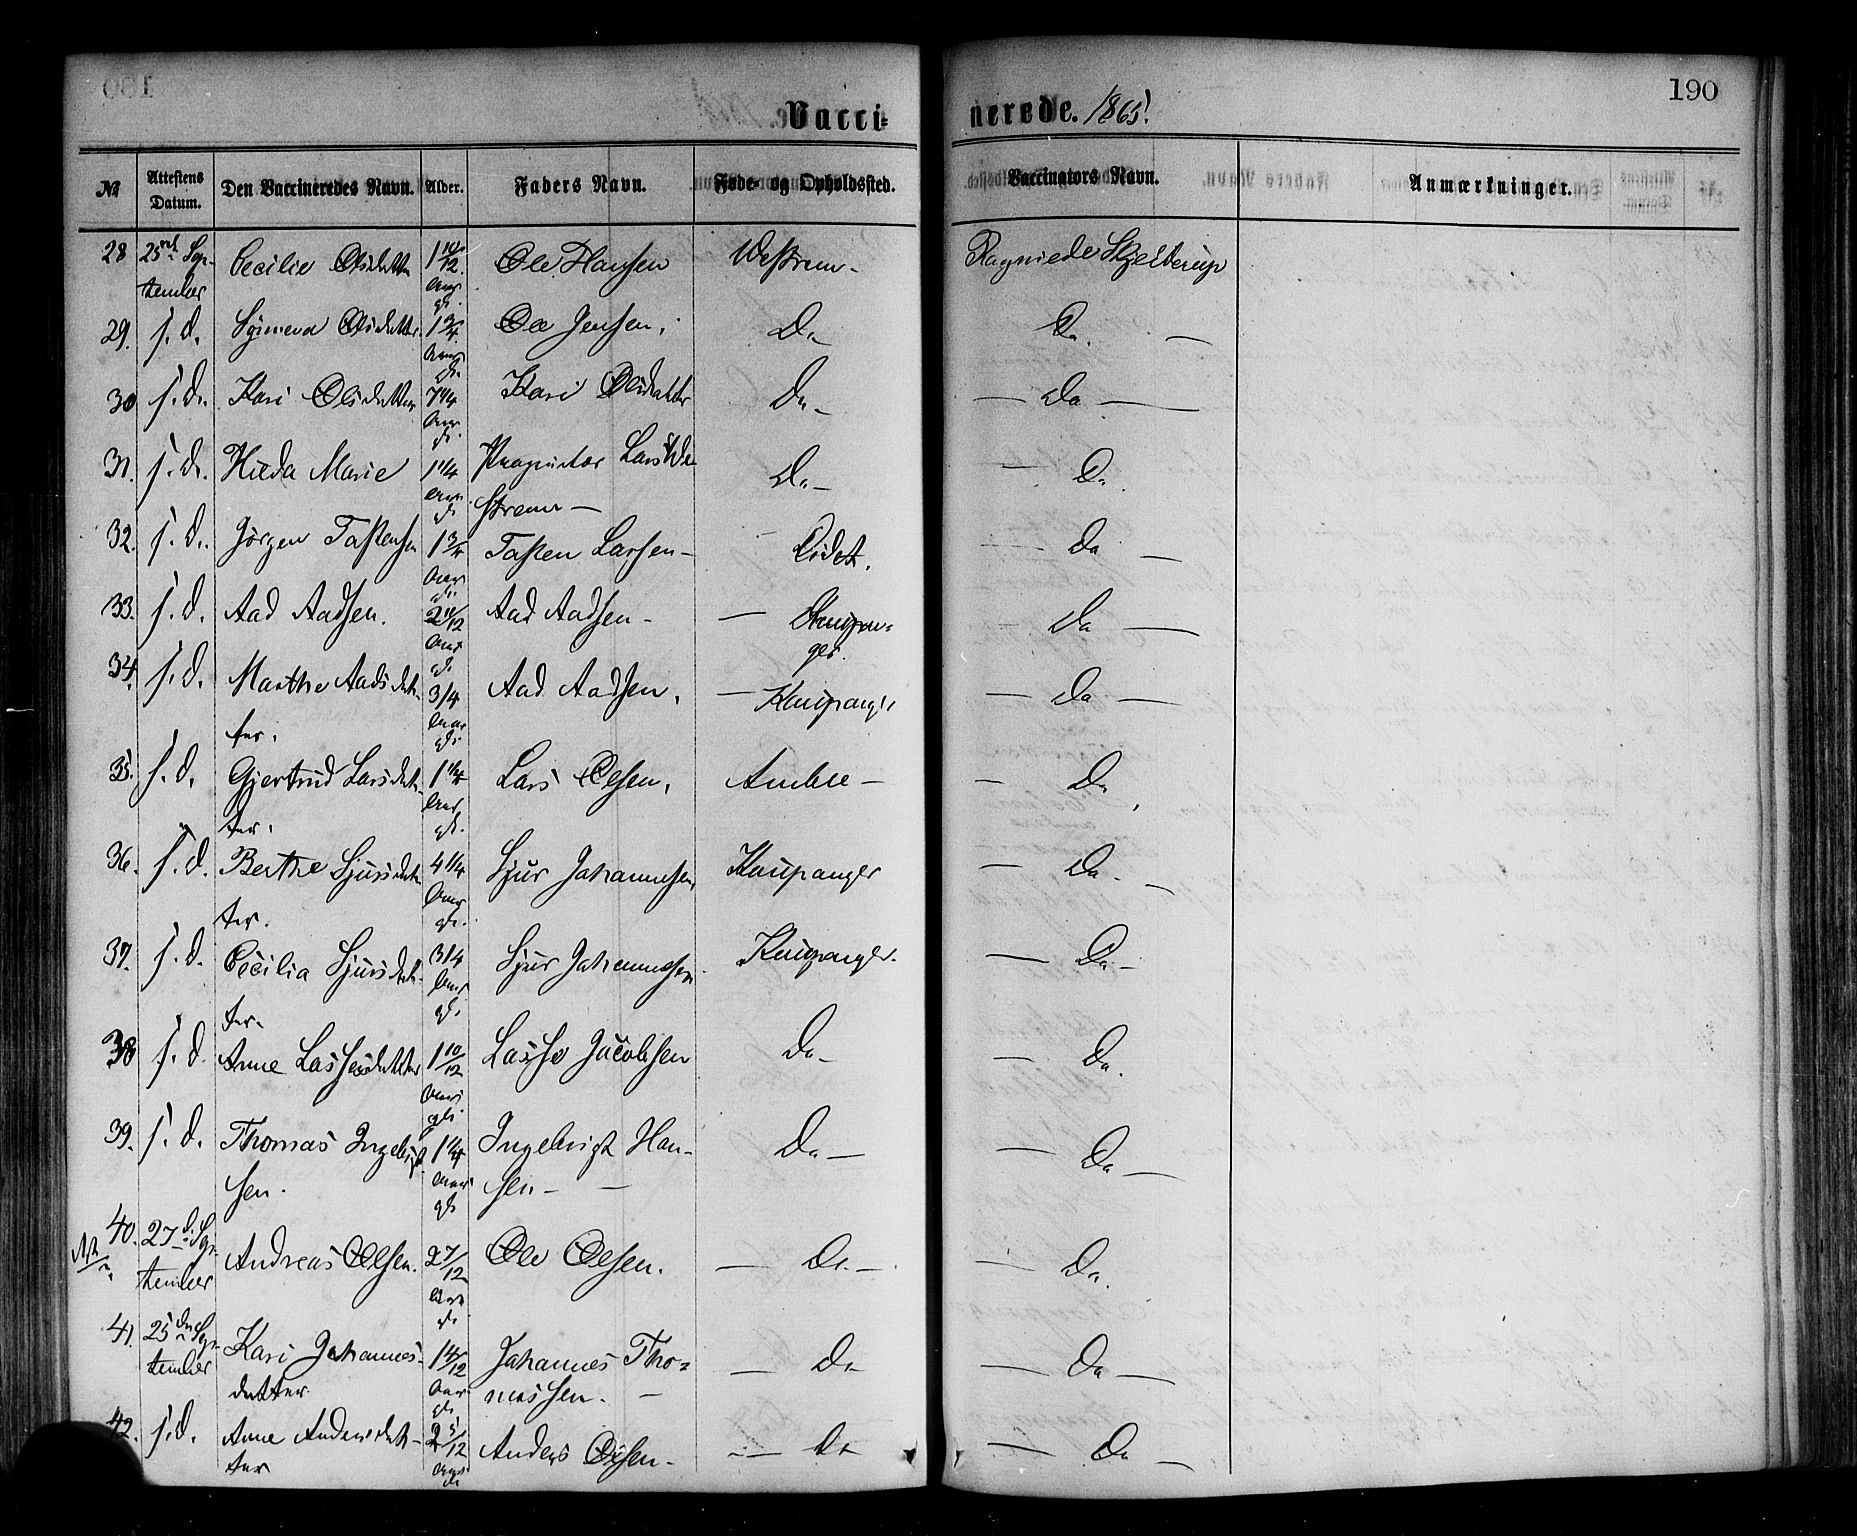 190
Vaccinerede. 1865.
№ Attestens Datum. Den Vaccineredes Navn. Alder. Faders Navn. Føde- og Opholdssted. Vaccinators Navn. Anmærkninger.
28 25 September Cecilie Olsdatter 1 10/12 Aar gl. Ole Hansen Westrem - Ragniede Skjelderup
29. s. d. Synneva Olsdatter 1 3/4 Aar gl. Ole Jensen. Do - Do. -
30 s. d. Kari Olsdatter 7 1/4 Aar gl. Kari Olsdatter Do - - Do -
31. s. d. Hilda Marie 1 1/4 Aar gl. Proprietær Lars We-
strem - Do - - Do.
32. s. d. Jörgen Tastensen 1 3/4 Aar gl. Tasten Larsen - Eidet. - Do -
33. s. d. Aad Aadsen. 2 11/12 Aar gl. Aad Aadsen - - Kaupan-
ger. - Do -
34. s. d. Marthe Aadsdat-
ter. 3/4 Aar gl. Aad Aadsen. - Kaupang. - Do -
35. s. d. Gjertrud Larsdat-
ter. 1 1/4 Aar gl. Lars Olsen. Amble - - Do.
36. s. d. Berthe Sjursdat-
ter. 4 1/4 Aar gl. Sjur Johannesen Kaupanger - Do. -
37. s. d. Cecilia Sjursdat-
ter. 3/4 Aar gl. Sjur Johannesen Kaupanger. - Do -
38 s. d. Anne Lassesdatter 1 10/12 Aar gl. Lasse Jacobsen Do - - Do.
39. s. d. Thomas Ingebrigt-
sen. 1 1/4 Aar gl. Ingebrigt Han-
sen - - Do - - Do -
40. 27 d. September Andreas Olsen. 2 7/12 Aar gl. Ole Olsen. - Do. - - Do.
41. 25 de September Kari Johannes-
datter 1 4/12 Aar gl. Johannes Tho-
massen. - - Do - Do -
42. s. d. Anne Andersdat-
ter 2 5/12 Aar gl. Anders Olsen - - Do - Do -